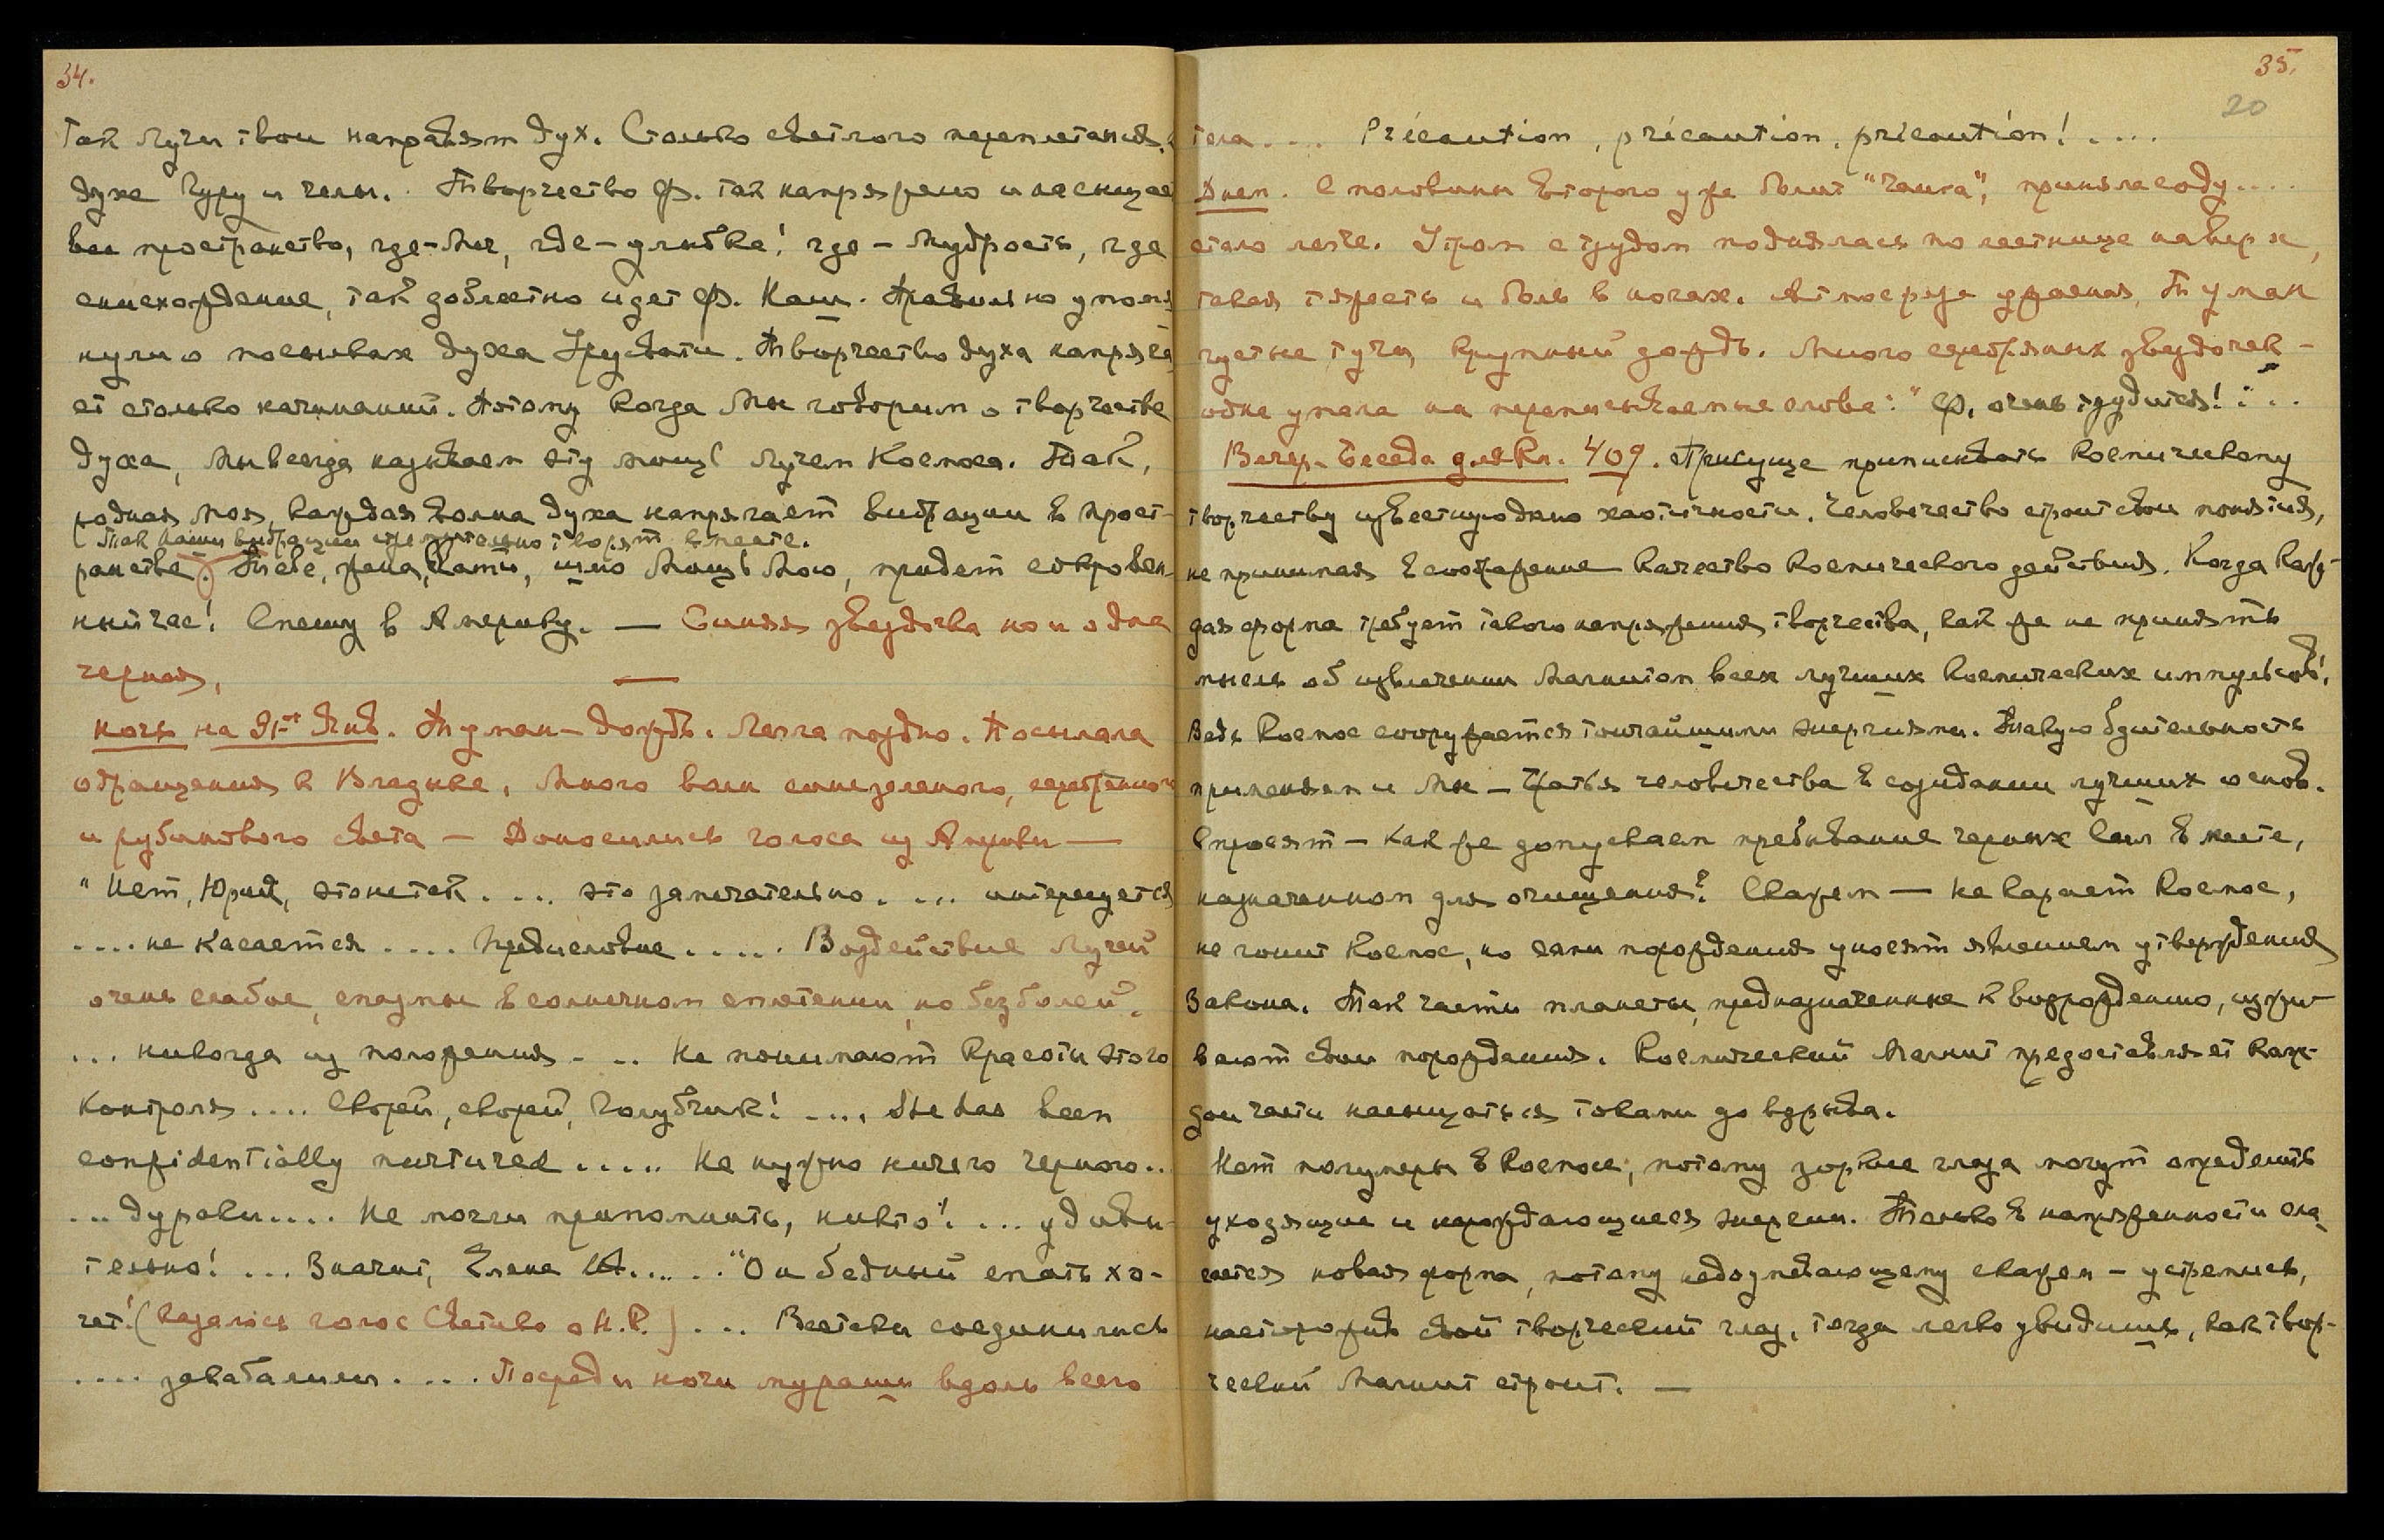 34.
Так Лучи твои направят дух. Столько светлого переплетения в
духе Гуру и челы. Творчество Ф. так напряжено и насыщает
все пространство, где-Мы, где-улыбка! где - Мудрость, где
снисхождение, так доблестно идет Ф. Наш. Правильно упомя-
нули о посывах духа Урусвати. Творчество духа напряга-
ет столько начинаний. Потому когда Мы говорим о творчестве
духа, Мы всегда называем эту мощь Лучем Космоса. Так,
родная Моя, каждая волна духа напрягает вибрации в прост-
Так ваши вибрации стремительно творят вместе.
ранстве. Тебе, жена, мать, шлю Мощь Мою, придет сокровен-
ный час! Спешу в Америку. — Синяя звездочка но и одна
черная.
Ночь на 31ое Янв. Туман-дождь. Легла поздно. Посылала
обращения к Владыке. Много волн синезеленого, серебряного
и рубинового света — Доносились голоса из Америки —
"Нет, Юрий, это не так.... это замечательно.... интересуется
....не касается.... Предисловие..... Воздействие Лучей
очень слабое, спазмы в солнечном сплетении, но без болей.
... никогда из положения... Не понимают красоты этого
контроля.... Скорей, скорей, голубчик! .... She has been
confidentially nurtured..... Не нужно ничего черного..
... дураки.... Не могли припомнить, никто! ... удиви-
тельно! ... Значит, Елена И...... "Он бедный спать хо-
чет! (казалось голос Светика о Н.К.) ... Ветки соединились
.... закабалили.... Посреди ночи мураши вдоль всего
35.
20
тела.... Précaution, précaution, précaution! ....
Днем. С половины второго уже болит "чаша", приняла соду....
стало легче. Утром с трудом поднялась по лестнице наверх,
такая тяжесть и боль в ногах. Атмосфера ужасная, Туман
густые тучи, крупный дождь. Много серебряных звездочек -
одна упала на переписываемые слова: "Ф. очень трудится!"...
Вечер. Беседа для Кн. 409. Присуще приписывать космическому
творчеству известную долю хаотичности. Человечество строит свои понятия,
не принимая в соображение качество космического действия. Когда каж-
дая форма требует такого напряжения творчества, как же не принять
мысль об извлечении Магнитом всех лучших космических импульсов!
Ведь Космос сооружается тончайшими энергиями. Такую бдительность
применяем и Мы - Братья человечества в созидании лучших основ.
Спросят - как же допускаем пребывание черных сил в месте,
назначенном для очищения? Скажем — не карает Космос,
не гонит Космос, но сами порождения уносят явлением утверждения
Закона. Так части планеты, предназначенные к возрождению, изжи-
вают свои порождения. Космический Магнит предоставляет каж-
дой части насыщаться токами до взрыва.
Нет полумеры в Космосе; потому зоркие глаза могут определить
уходящие и нарождающиеся энергии. Только в напряженности сла-
гается новая форма, потому недоумевающему скажем - устремись,
насторожив свой творческий глаз, тогда легко увидишь, как твор-
ческий Магнит строит. —